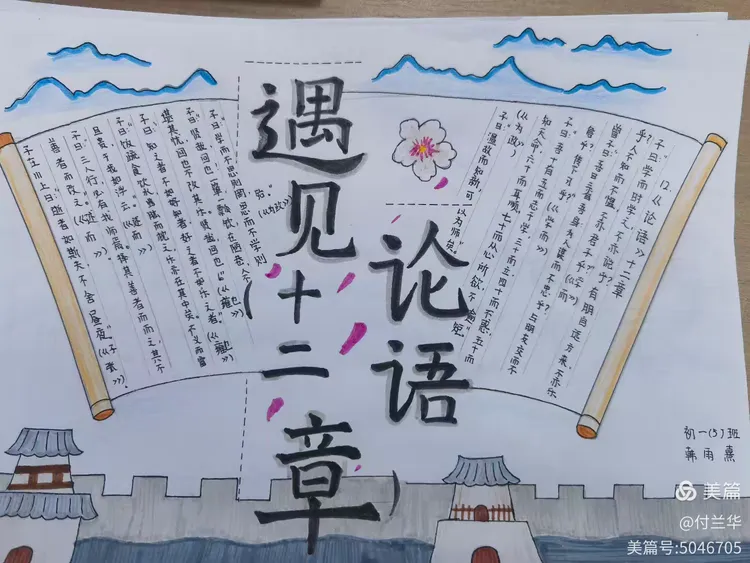 论语
遇见
(十二章)
12《论语》十二章
子曰:“学而时学之,不亦说乎?有朋自远方来,不亦乐
乎?人不知而不愠,不亦君子乎?”(《学而》)
曾子曰:“吾日三省吾身:为人谋而不忠乎?与朋友交而不
信乎?传不习乎?”(《学而》)
子曰:“吾十有五而志于学,三十而立,四十而不惑,五十而
知天命,六十而耳顺,七十而从心所欲,不逾矩。”
(《为政》)
子曰:“温故而知新,可
以为师矣。”
子曰:“学而不思则罔,思而不学则
殆。”(《为政》)
子曰:“贤哉回也!一箪食,一瓢饮,在陋巷,人不
堪其忧,回也不改其乐。贤哉回也!”(《雍也》)
子曰:“知之者不如好知者,好之者不如乐之者。”(《雍也》)
子曰:“饭疏食饮水,曲肱而枕之,乐亦在其中矣。不义而富
且贵,于我如浮云。”(《述而》)
子曰:“三人行,必有我师焉。择其善者而从之,其不
善者而改之。”(《述而》)
子在川上曰:“逝者如斯夫,不舍昼夜。”(《子张》)
初一(5)班
雨熹
美篇
@付兰华
美篇号:5046705